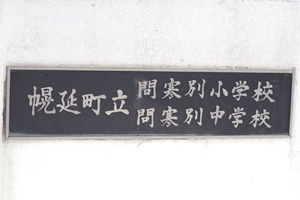 幌延町立
問寒別小学校
問寒別中学校